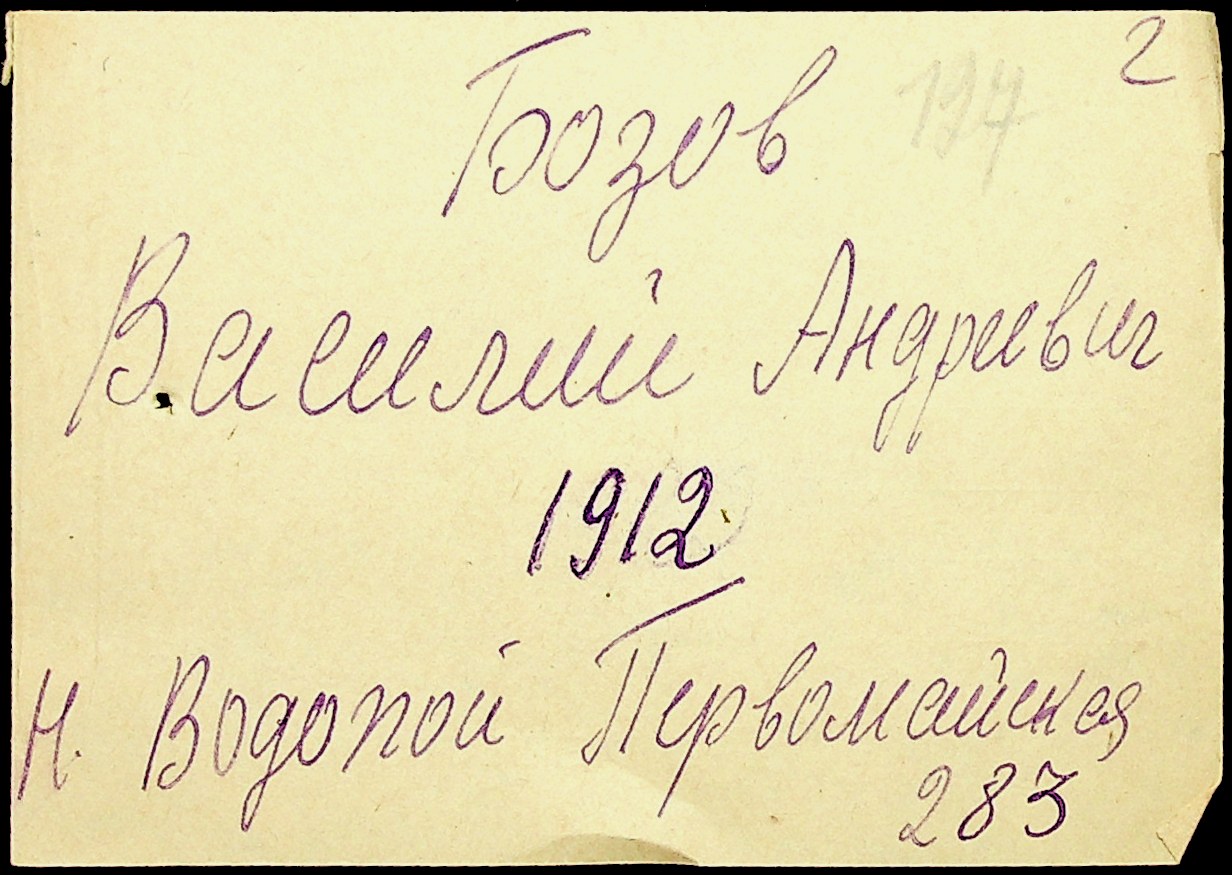 2
197
Бозов
Василий Андреевич
1912
Н. Водопой Первомайская
283